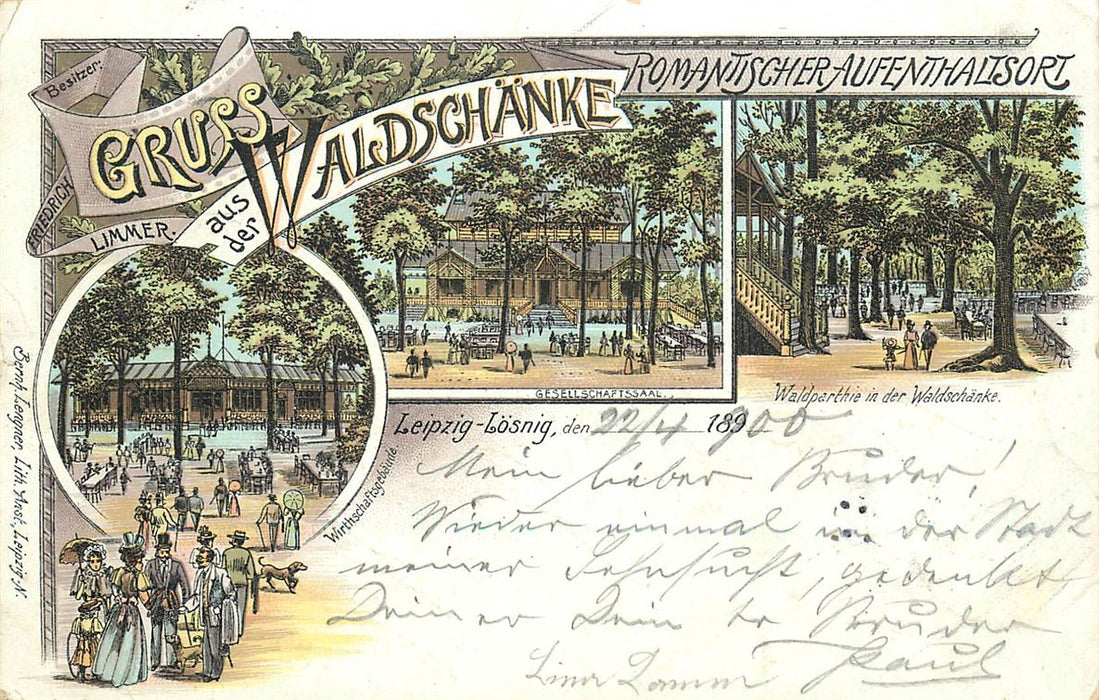 Besitzer:
FRIEDRICH
LIMMER.
GRUSS
aus
der
WALDSCHÄNKE
ROMANTISCHER AUFENTHALTSORT
GESELLSCHAFTSSAAL.
Waldparthie in der Waldschänke.
Wirthschaftsgebäude
Leipzig-Lösnig, den 22/4 1900
Mein lieber Bruder!
Wieder einmal in der Stadt
meiner Sehnsucht, gedenkt
Deiner Dein Bruder
Paul
Lith. Anst., Leipzig-N.